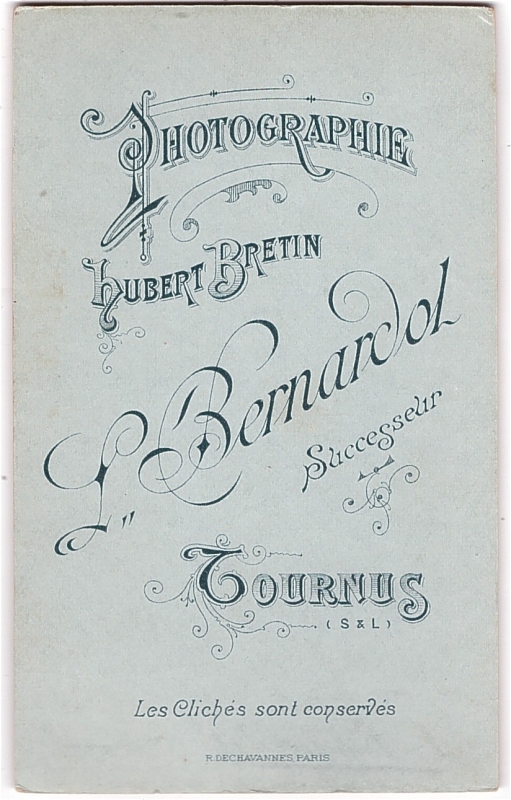 PHOTOGRAPHIE
HUBERT BRETIN
L. Bernardol
Successeur
TOURNUS
(S & L)
Les Clichés sont conservés
R. DECHAVANNES, PARIS